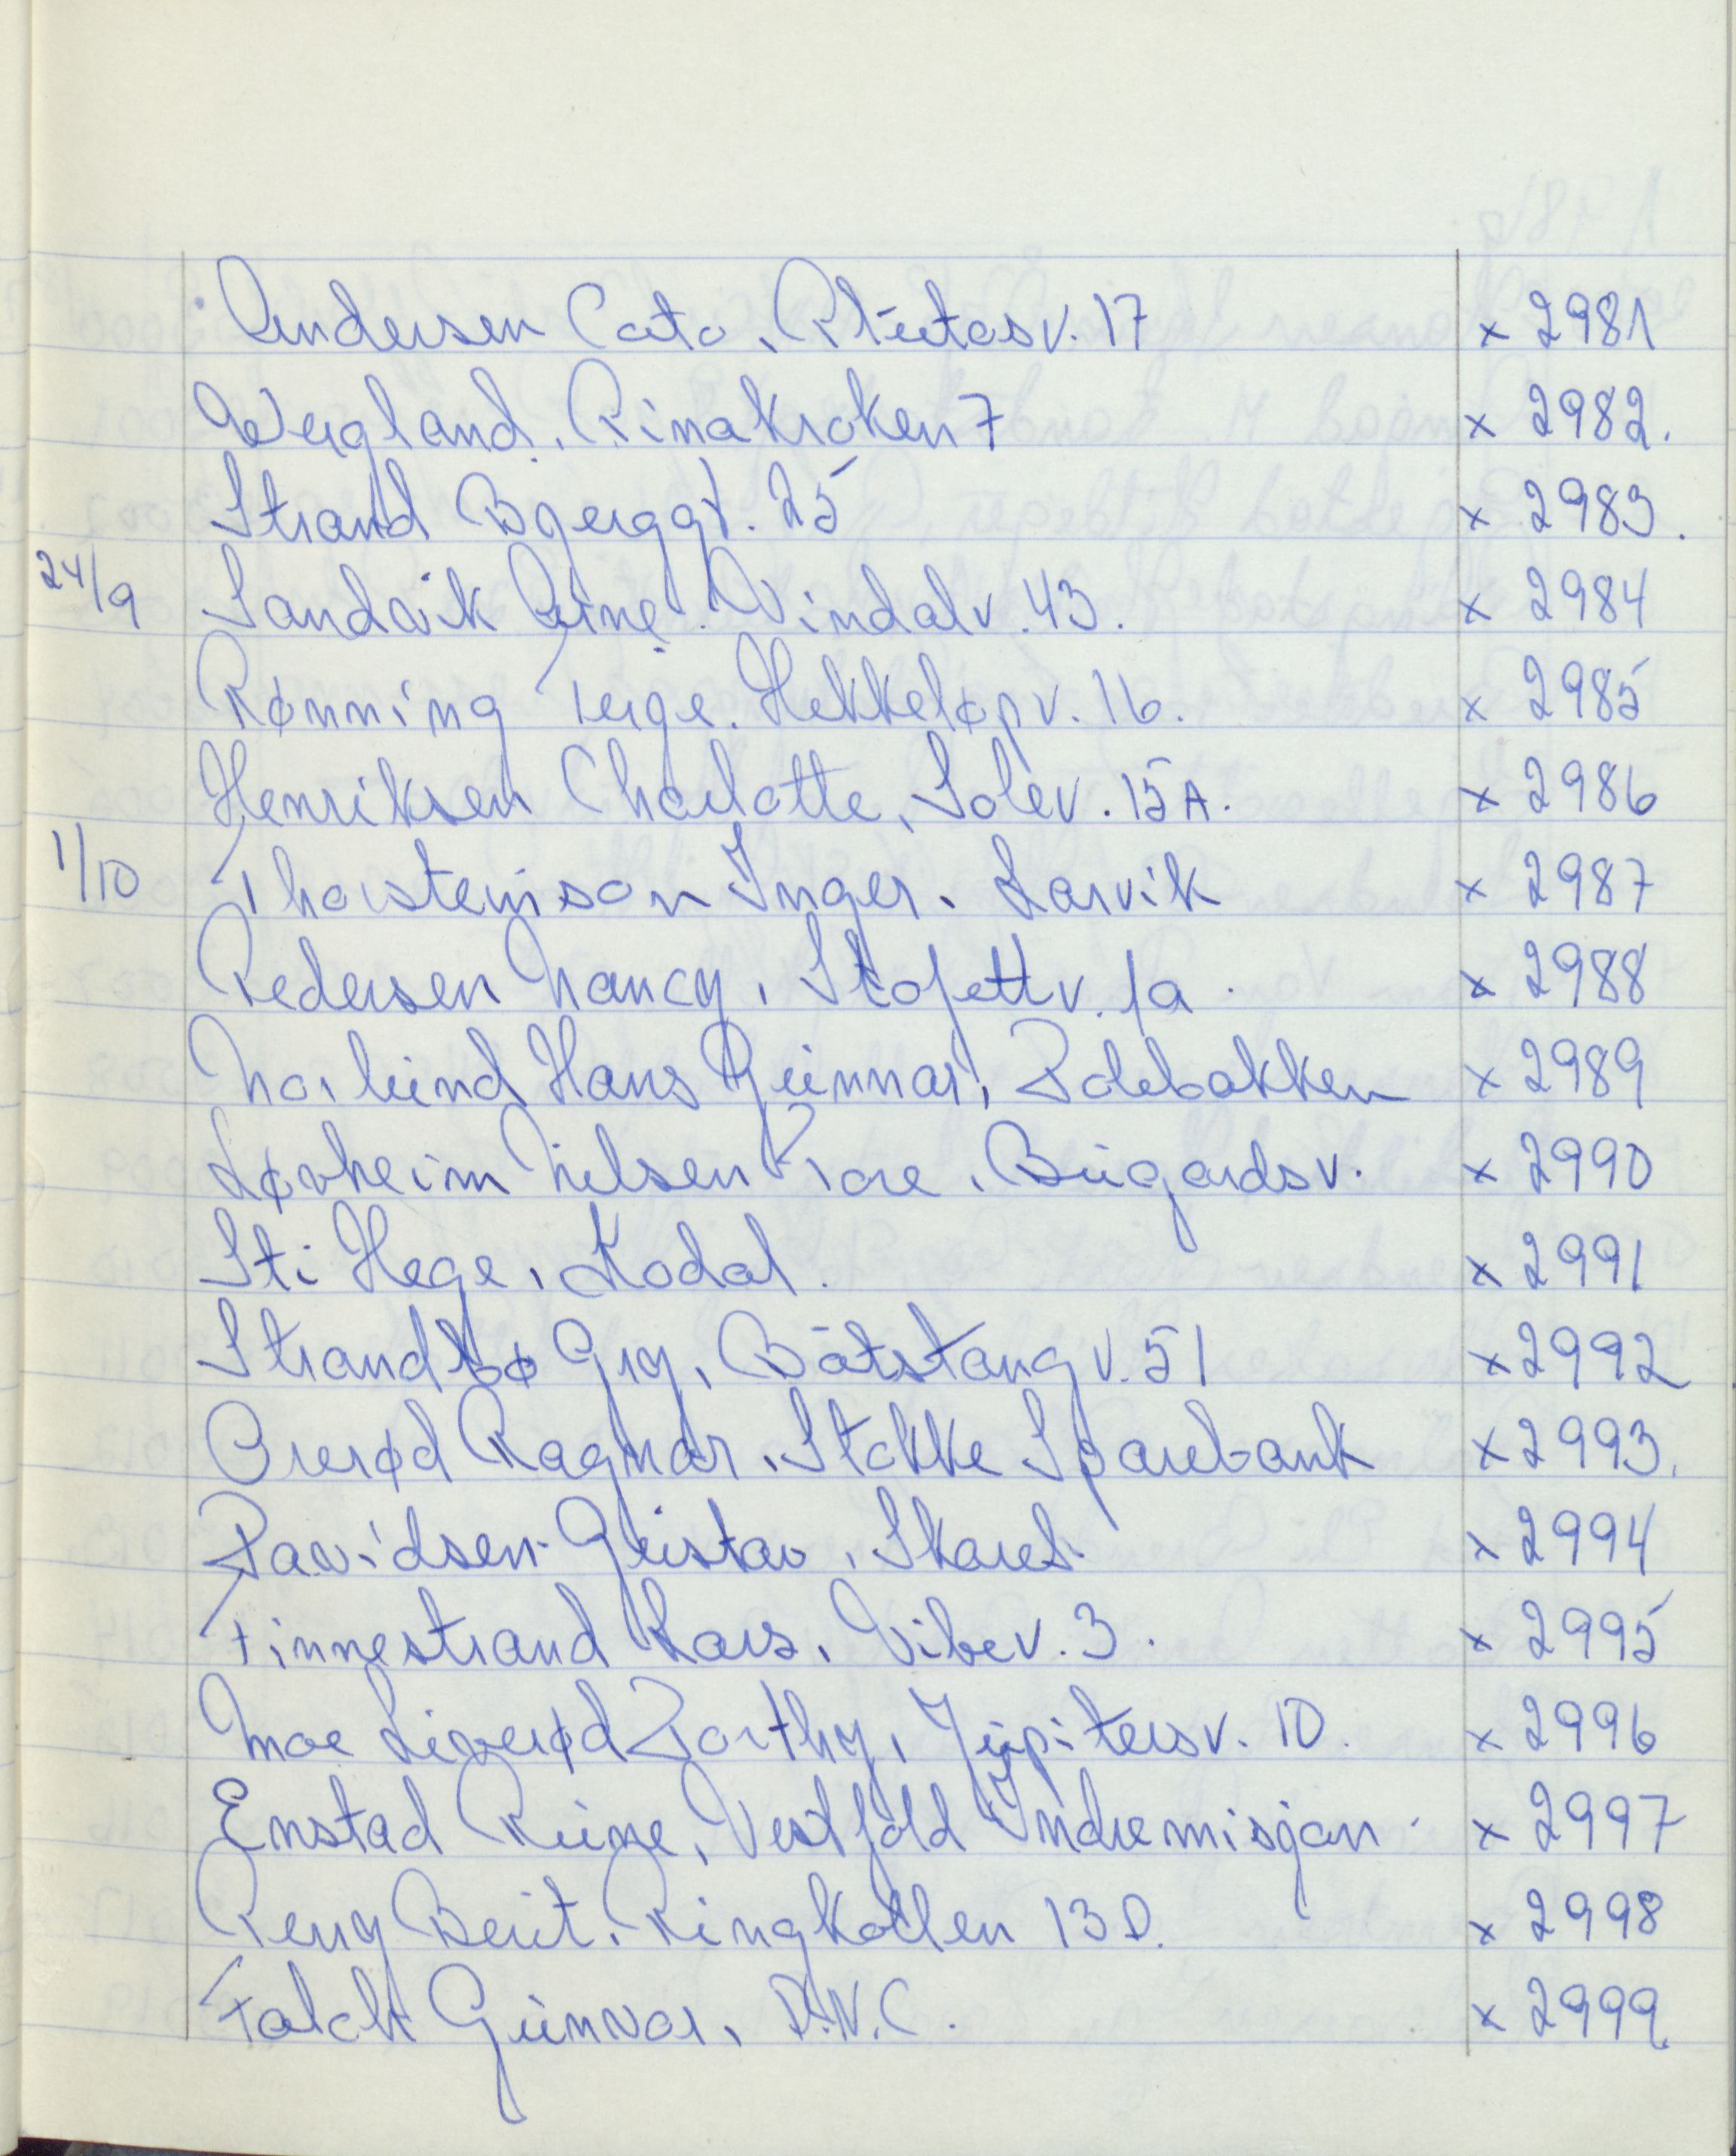 Andersen Cato, Plutosv. 17 x 2981
Wergland, Rimakroken 7 x 2982.
Strand Bjerggt. 25 x 2983.
24/9 Sandvik Arne. Vindalv. 43. x 2984
Rønning Terje. Hekkeløpv. 16. x 2985
Henriksen Charlotte, Solev. 15A. x 2986
1/10 Thorsteinson Inger. Larvik x 2987
Pedersen Nancy, Stafettv. 1a. x 2988
Norlund Hans Gunnar, Dølebakken x 2989
Løvheim Nilsen Tore, Bugårdsv. x 2990
Sti Hege, Kodal. x 2991
Strandbø Gry, Båtstangv. 51 x 2992
Ørerød Ragnar, Stokke Sparebank x 2993.
Davidsen Gustav, x 2994
Finnestrand Lars, Vibev. 3. x 2995
Moe Liverød Dorthy, Jupitersv. 10. x 2996
Enstad Rune, Vestfold Indremisjon. x 2997
Perry Berit, Ringkollen 13D. x 2998
Falch Gunvor, D.N.C. x 2999.